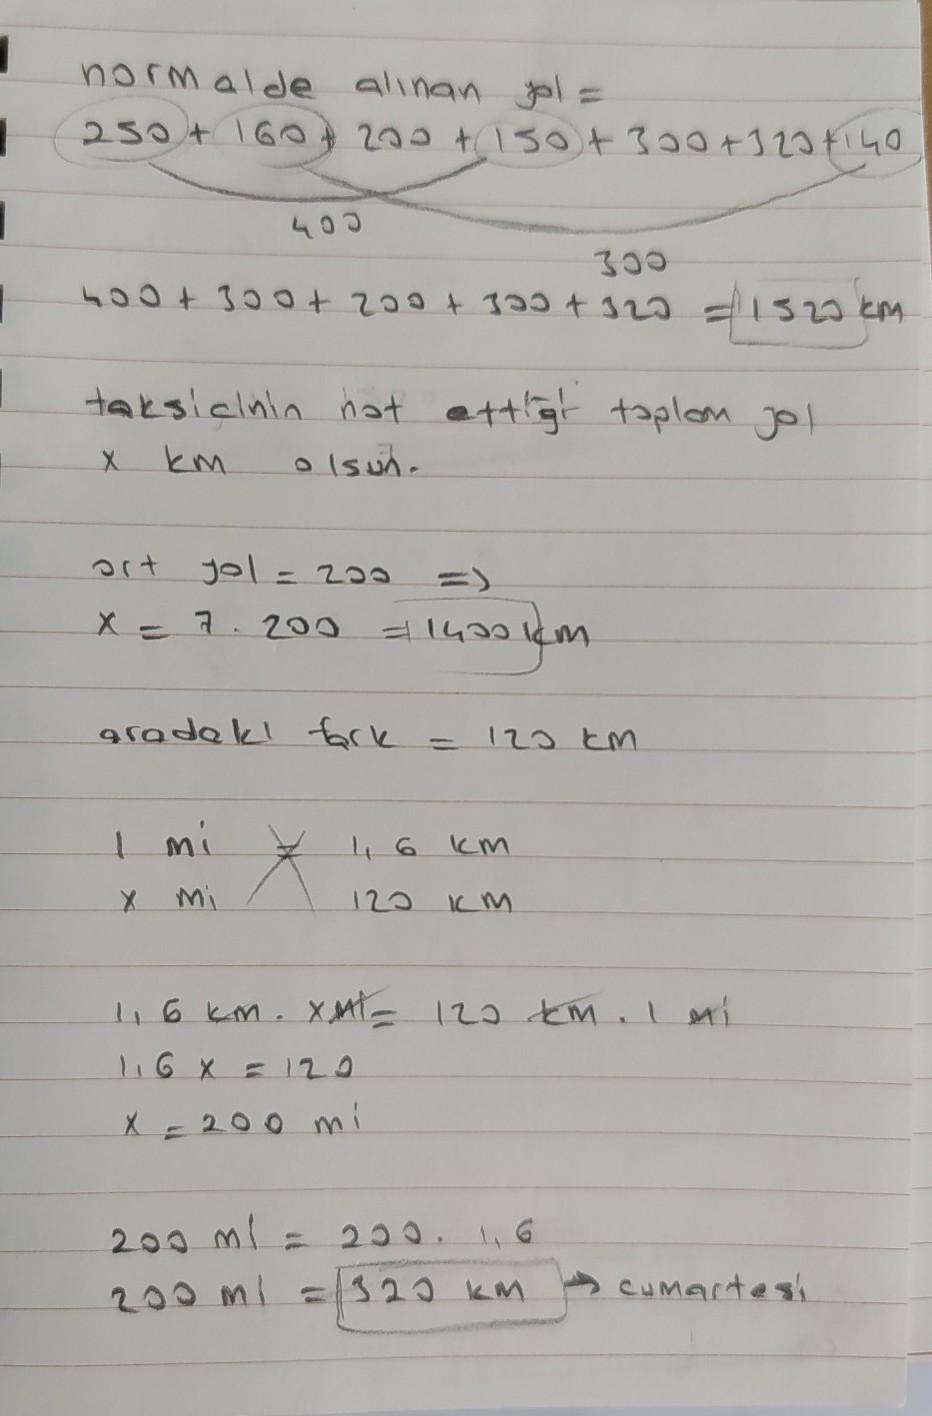 normalde alınan yol =
250 + 160 + 200 + 150 + 300 + 320 + 140
400
300
400 + 300 + 200 + 300 + 320 = 1520 km
taksicinin not ettiği toplam yol
x km olsun.
ort yol = 200 =>
x = 7 . 200 = 1400 km
aradaki fark = 120 km
1 mi 1,6 km
x mi 120 km
1,6 km . x mi = 120 km . 1 mi
1,6 x = 120
x = 200 mi
200 mi = 200 . 1,6
200 mi = 320 km → cumartesi